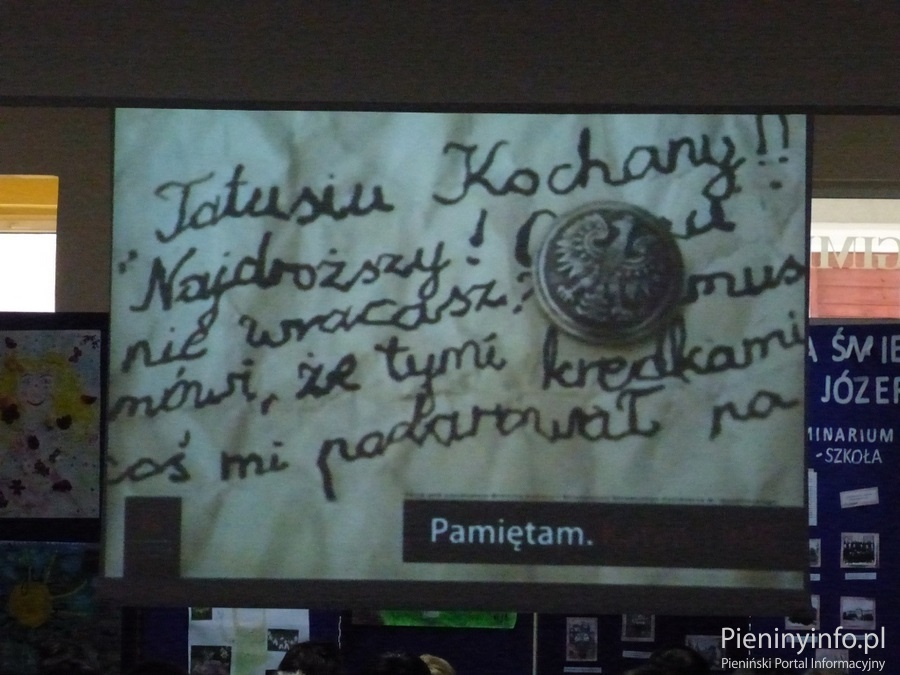 Tatusiu Kochany!!
Najdroższy!
nie wracasz? mus
mówi, że tymi kredkami
coś mi podarował na
Pamiętam.
GIM
A ŚWIĘ
JÓZEF
MINARIUM
-SZKOŁA
Pieninyinfo.pl
Pieniński Portal Informacyjny